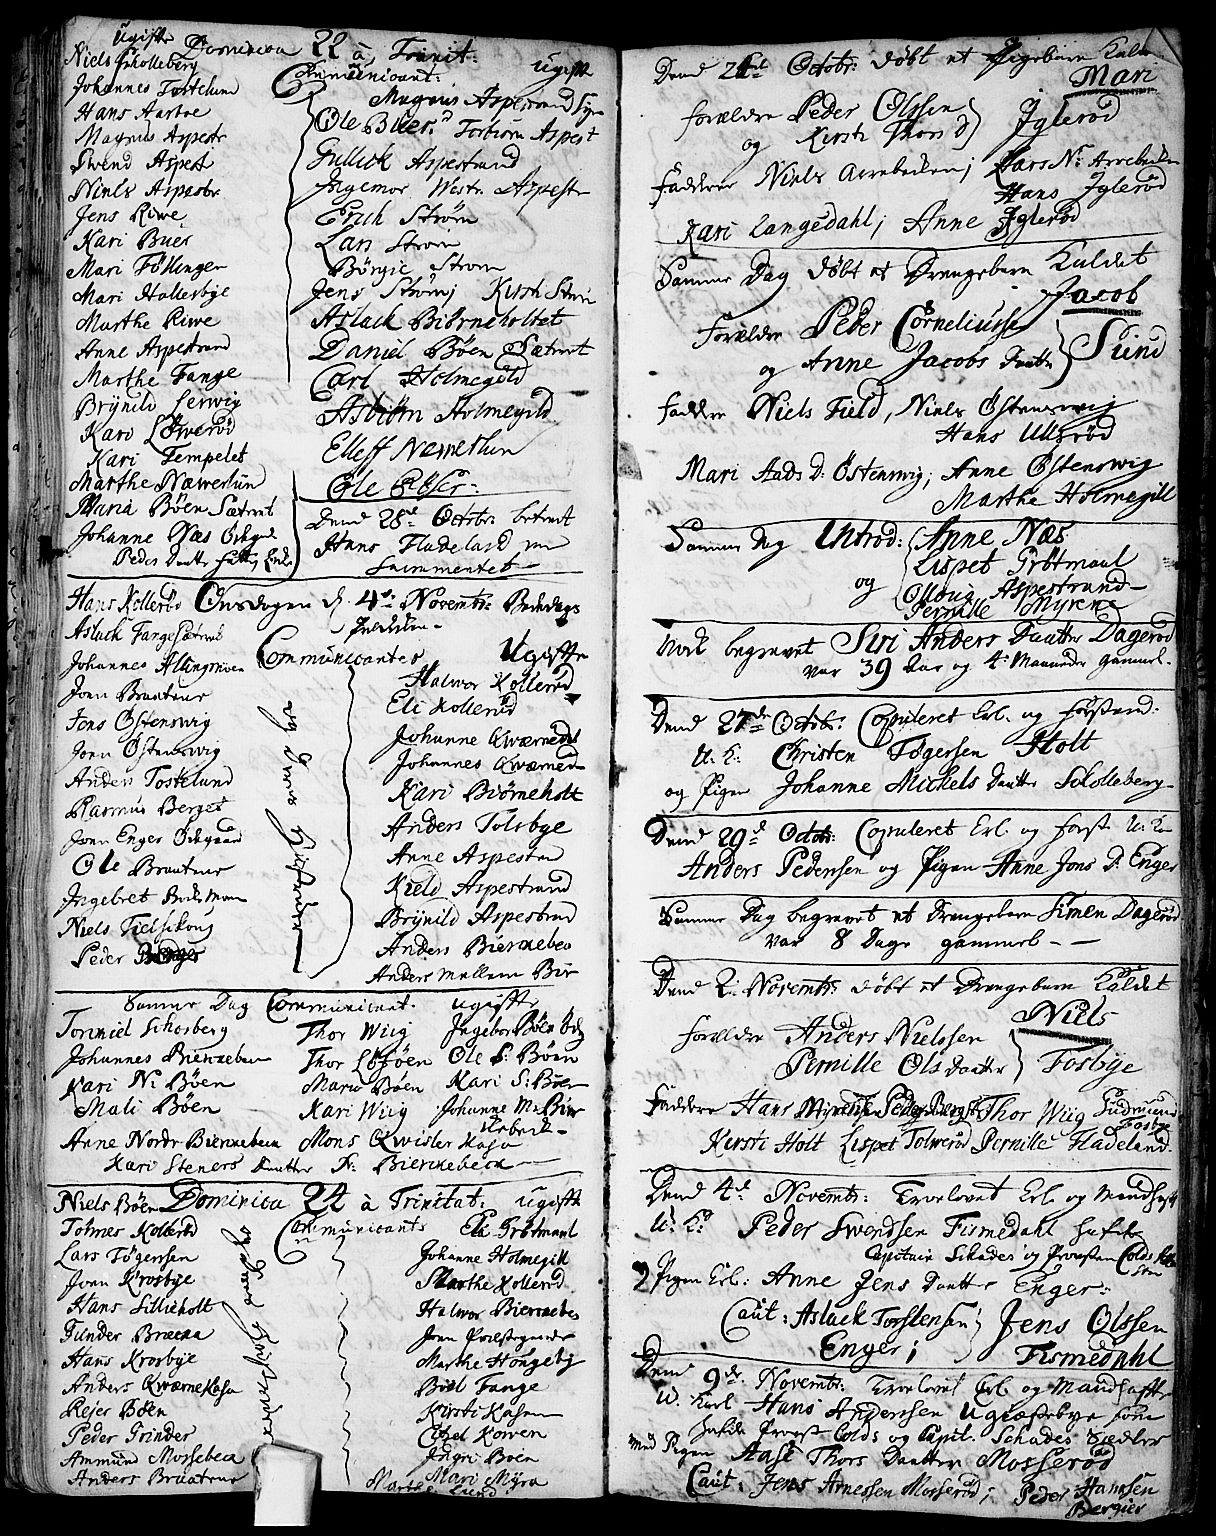 Ugifte Dominica 22 à Trinit:
Niels Skolleberg
Johannes Tostelund
Hans Aastoe
Magnus Aspestr
Swend Aspest
Niels Aspestr
Jens Riwe
Kari Buer
Mari Föllingen
Mari Hallesbye
Marthe Riwe
Anne Aspestrand
Marthe Fange
Brÿnild Lerwig
Kari Löwerød
Kari Tempelet
Marthe Næwerlun
Maria Böen Sætret
Johanne Næs
Peders Daatter
Communicant: ugifte
Magnus Aspestrand
Ole Buer: Torbiörn Aspest
Gullick Aspestrand
Ingemor Westr Aspestr
Erich Ström
Lars Ström
Börgie Strom
Jens Ström; Kirsti Ström
Aslack Biörneholtet
Daniel Böen Sætret
Carl Holmegild
Asbiörn Holmegild
Elleff Næwerlun
Ole Olser:
Dend 28de Octobr: betient
Hans Fladeland med
Sacramentet
Hans Kollerød Onsdagen d. 4de Novembr: Bededags
Aslack Fange Sætret
Johannes Allingmoen
Joen Braateur
Jens Östenswig
Joen Östenswig
Anders Tostelund
Rasmus Berget
Joen Enger
Ole Braateur
Ingebret
Niels Fielskoug
Peder
Communicantes Ugifte
Halwor Kollerød
Eli Kollerød
Johanne Kwærned
Johannes Kwærned
Kari Biörneholt
Anders Tolsbye
Anne Aspestra
Kield Aspestrand
Brÿnild Aspestrad
Anders Biernebea
Anders mellem Bie
Samme Dag Communicant. ugifte
Tormod Schosberg Thor Wiig Ingebor Böen
Johannes Biennebæn Thor Löjöen Ole S: Böen
Kari N: Böen Maria Böen Kari S: Böen
Mali Böen Kari Wiig Johanne M: Böen
Anne Nordr Biennebæn Mons Qwisler Kasa
Kari Steners Daatter N: Biennebeca
Niels Böen Dominica 24 à Trinitat: ugifte
Tolmes Kollerød Communicants Eli Grötmaul
Lars Tögersen Johanne Holmegill
Joen Krosbÿe Marthe Kollerød
Hans Sillieholt Halwor Biennebe
Tunder Bræcka Joen
Hans Krosbÿe Marthe Hougebÿ
Anders Kwærnekasa Birt Fange
Rejer Böen Kirsti Kasen
Peder Grinder Cidzel Kowen
Ammund Mossebeca Ingri Böen
Anders Braateur Mari Mÿra
Marthe Lund
Dend 21de Octobr: döbt et Pigebarn Kaldet
Mari
forældre Peder Olssen
og Kirsti Thors D Iglerød
faddere Niels Arrebacken; Lars N: Arrebacken
Hans Iglerød
Kari Langedahl; Anne Iglerød
Samme Dag döbt et Drengebarn Kaldet
Jacob
forældre Peder Corneliussen
og Anne Jacobs Daatter Sund
faddere Niels Field, Niels Östenswig
Hans Ullerød
Mari Aads D: Östenswig; Anne Östenswig
Marthe Holmegill
Samme Dag Introd: Anne Næs
Lispet Grötmaul
og Olloug Aspestrand
Pernille Mÿrene
Nock begravet Siri Anders Daatter Dagerød
var 39 Aar og 4 Maaneder gammel.
Dend 27de Octobr: Copuleret Erl. og forstand:
U: K: Christen Tögersen Holt
og Pigen Johanne Mickels Daatter Skolleberg
Dend 29de Octobr: Copuleret Erl og forst U: K
Anders Pedersen og Pigen Anne Jons D: Enger
Samme Dag begravet et Drengebarn Simen Dagerød
var 8 Dage gammel
Dend 2. Novembr: döbt et Drengebarn Kaldet
Niels
forældre Anders Nielssen
Pernille Ols Daatter Fosbÿe
Faddere Hans Peder Berget Thor Wiig Gudmund Fosbÿe
Kirsti Holt Lispet Tolwerød Pernille Fladeland
Dend 4de Novembr: Troelovet Erl og Mandhaft
U. K: Peder Swendsen Fismedahl
Capitain Schades og Provsten Colds
Pigen Erl: Anne Jens Daatter Enger
Caut: Aslack Torstensen Jens Olssen
Enger; Fismedahl
Dend 9de Novembr: Troelovet Erl og Mandhaffte
U. Karl Hans Andersen Ugræsbye
Provst Colds og Capit. Schades Sædler
med Pigen Aase Thors Daatter Mosserød
Caut: Jens Arnessen Mosserød; Peder Hanssen
Bergier